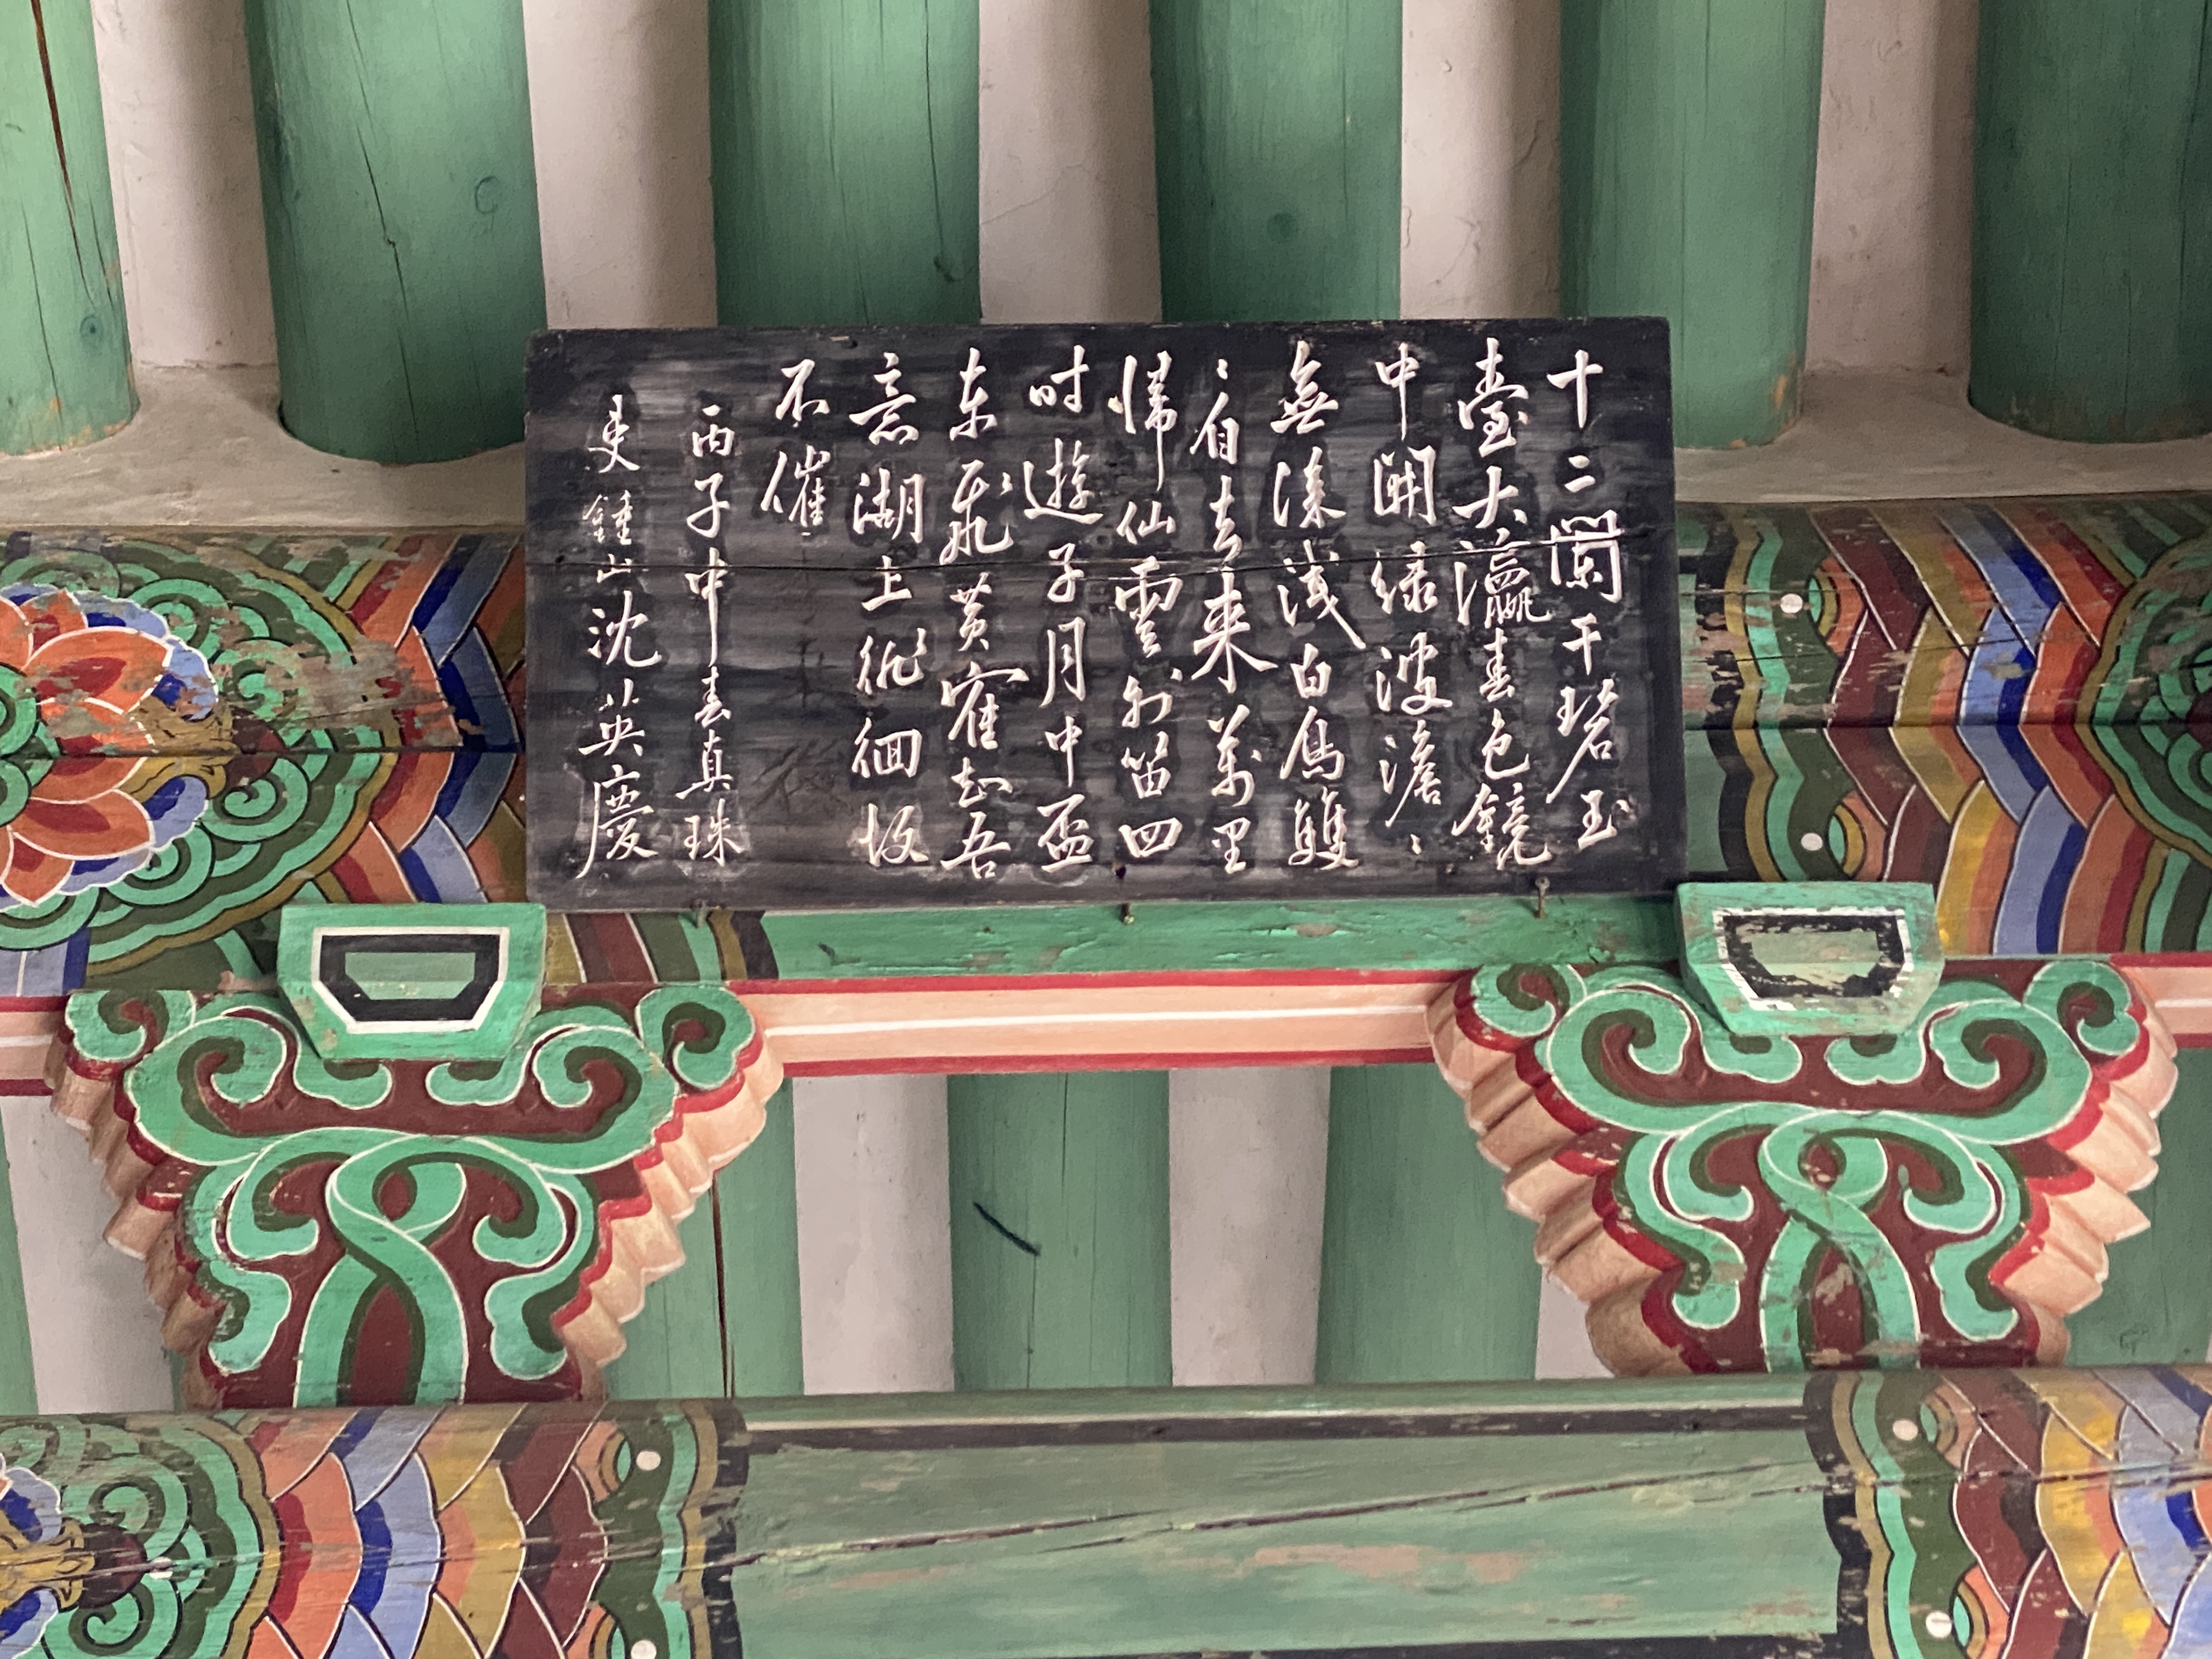 十二闌干碧玉
臺大瀛春色鏡
中開綠波澹〻
無深淺白鳥雙
〻自去來萬里
歸仙雲外笛四
時遊子月中盃
東飛黃鶴知吾
意湖上徘徊故
不催
丙子中春真珠
吏鍾山沈英慶